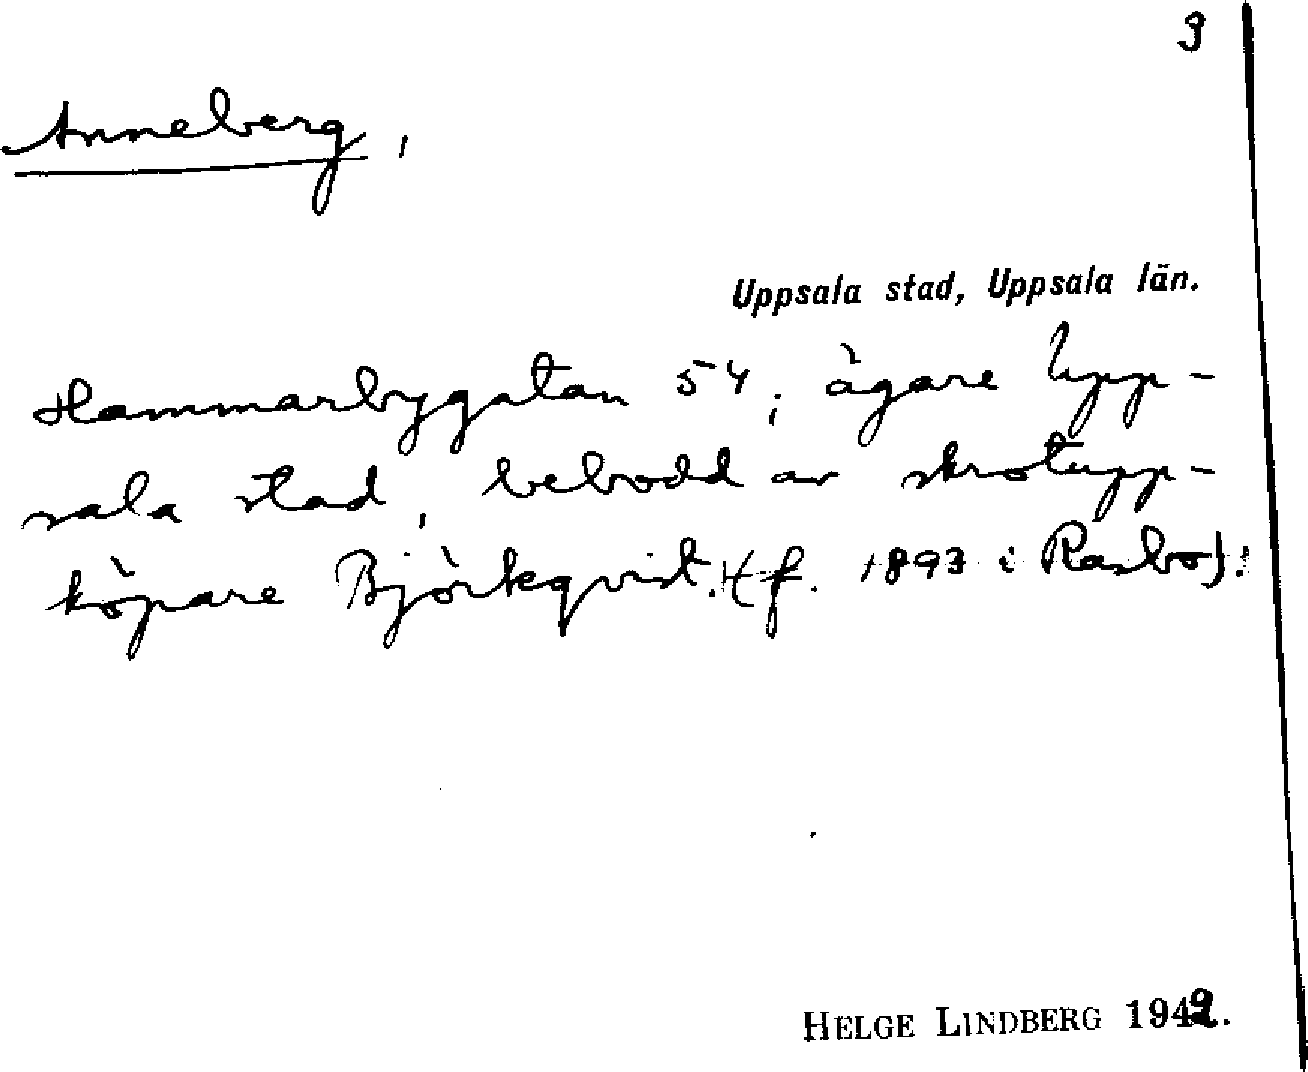 3
Anneberg,
Uppsala stad, Uppsala län.
Hammarbygatan 54; ägare Upp-
sala stad, bebodd av skrotupp-
köpare Björkqvist. (f. 1893 i Rasbo).
HELGE LINDBERG 1942.